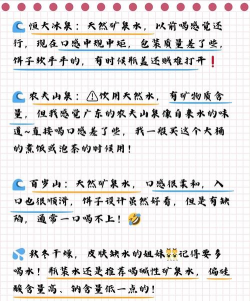 🌊 恒大冰泉：天然矿泉水，以前喝感觉还
行，现在口感中规中矩，包装质量差了些，
饼子软乎乎的，有时候瓶盖还贼难打开❗
🌊 农夫山泉：⚠饮用天然水，有矿物质含
量，但我感觉广东的农夫山泉像自来水的味
道~直接喝口感差了些，我一般买这个大桶
的煮饭或泡茶的时候用！
🌊 百岁山：天然矿泉水，口感很柔和，入
口也很顺滑，饼子设计虽然好看，但是有缺
陷，通常一口喝不上！🤣
💦 秋冬干燥，皮肤缺水的姐妹👯记得要多
喝水！瓶装水还是推荐喝碱性矿泉水，偏硅
酸含量高、钠含量低一点的！